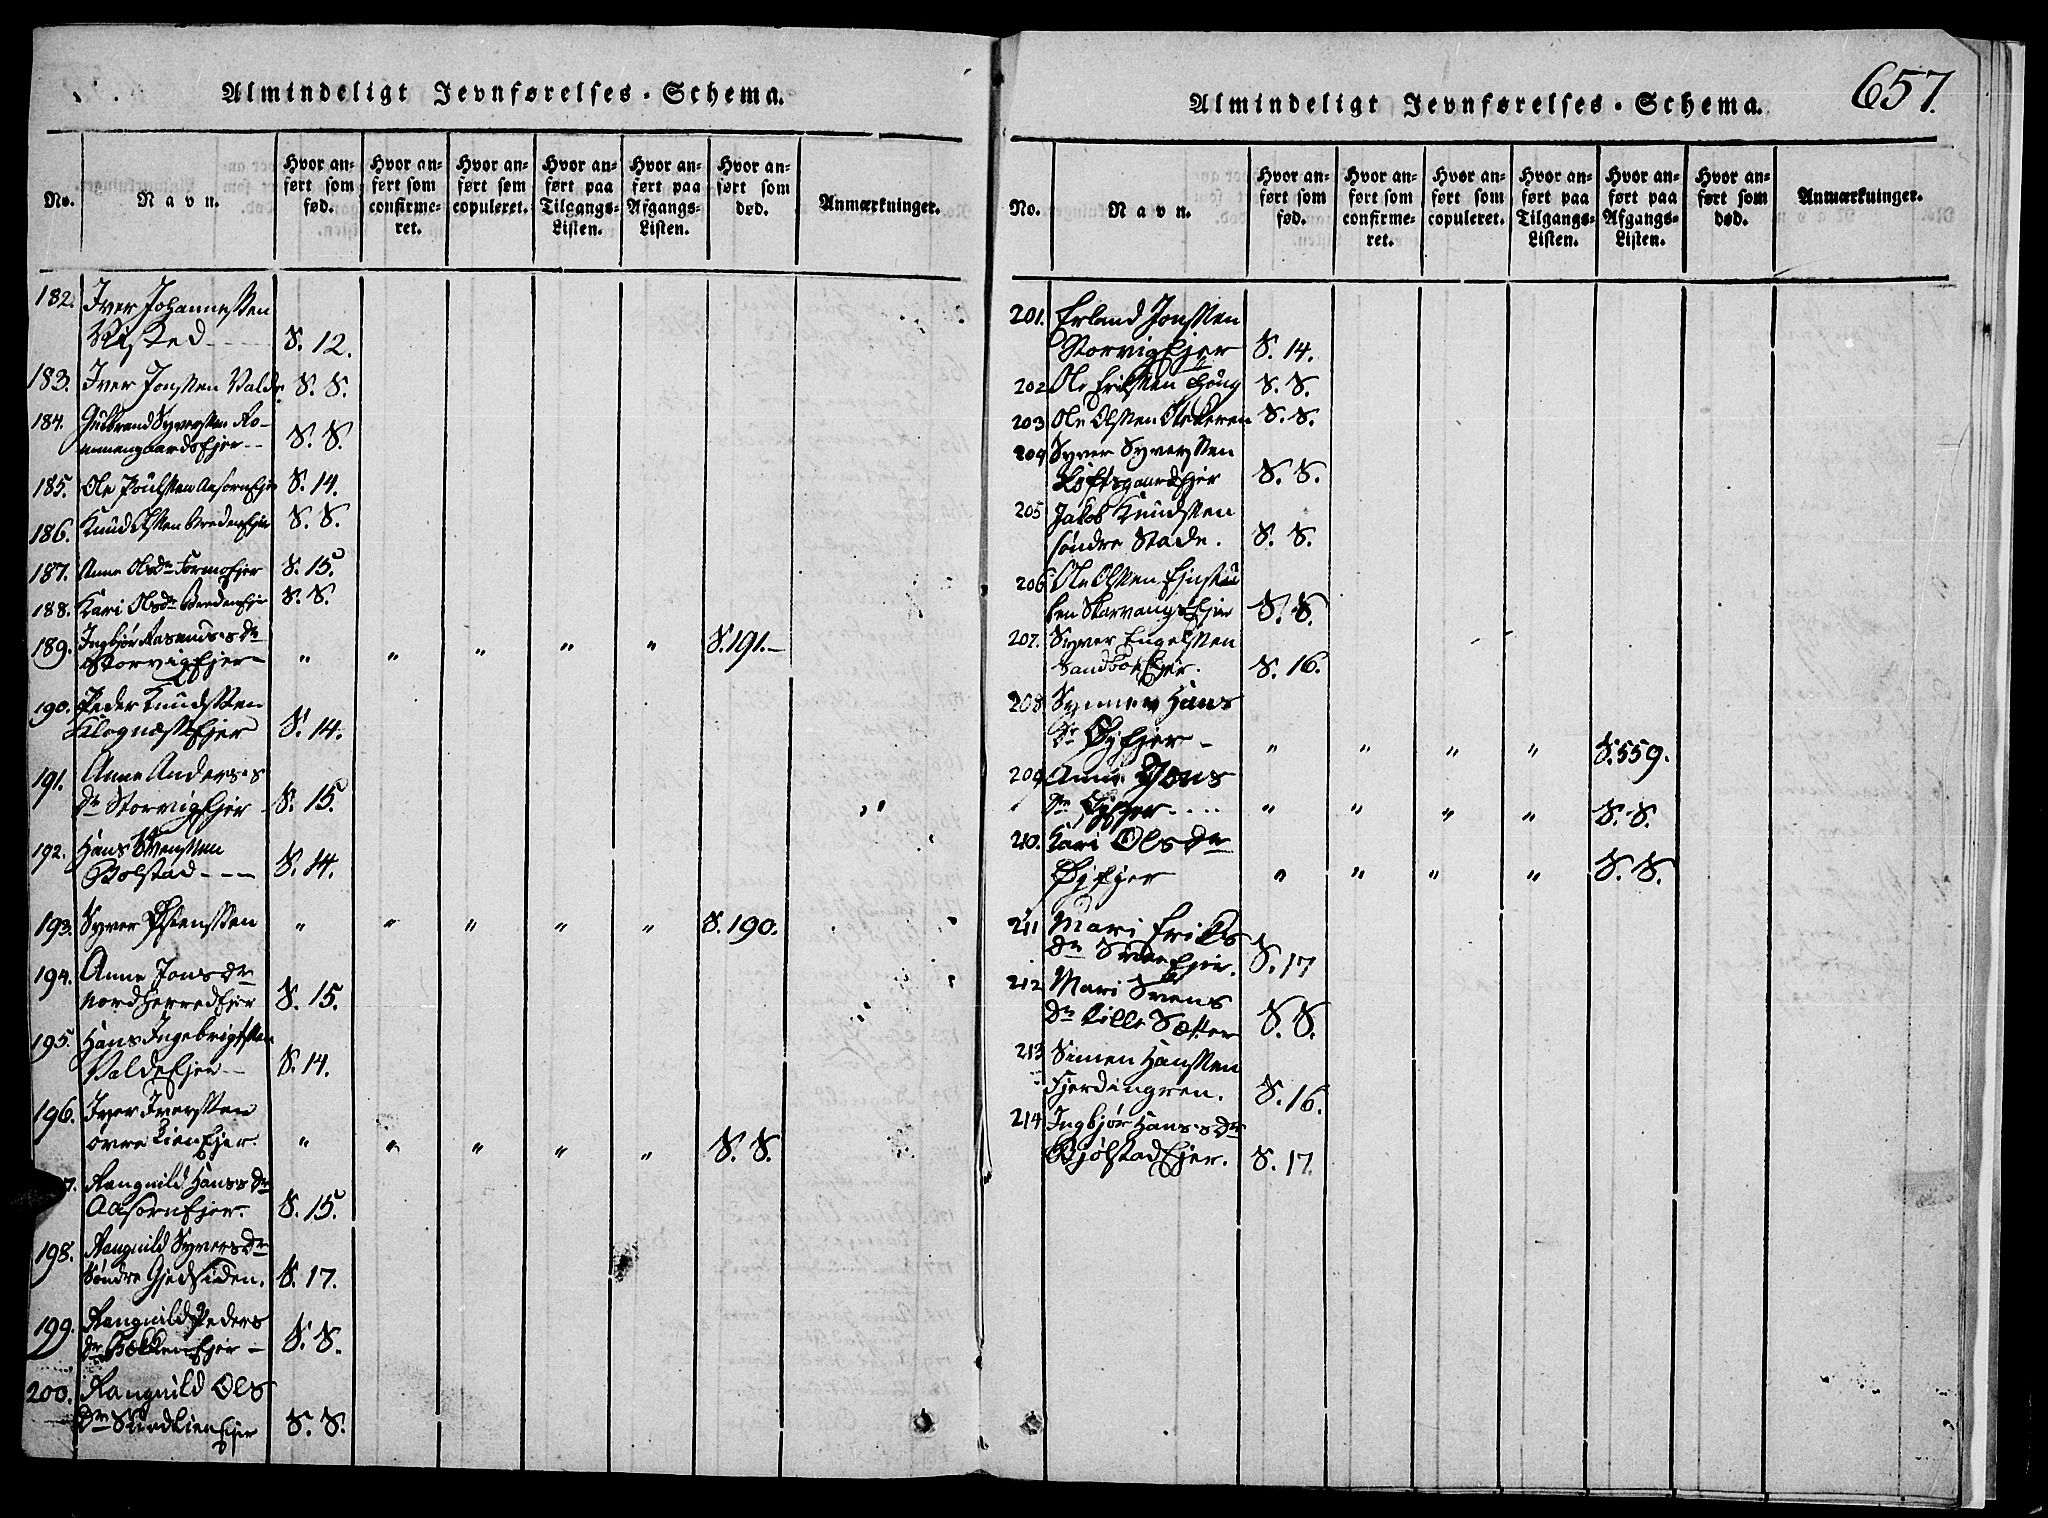 Almindeligt Jevnførelses-Schema.
No.
Navn.
Hvor anført som fød.
Hvor anført som confirmeret.
Hvor anført som copuleret.
Hvor anført paa Tilgangs-Listen.
Hvor anført paa Afgangs-Listen.
Hvor anført som død.
Anmærkninger.
182. Iver Johannessen
S. 12.
183. Iver Jonssen Valde. S. S.
184. Gulbrand Syverssen Ro-
mmengaardsEjer -- S. S.
185. Ole Poulssen AasornEjer S. 14.
186. Knud Olssen BredenEjer S. S.
187. Anne Olsdr FormoEjer S. 15.
188. Kari Olsdr BredenEjer S. S.
189. Ingbjør Rasmusdr
StorvigEjer - " " " " " S. 191. -
190. Peder Knudssen
KlognæssEjer S. 14.
191. Anne Anders-
dr StorvigEjer - S. 15.
192. Hans Svenssen
Bolstad --- S. 14.
193. Syver Østenssen " " " " " S. 190.
194. Anne Jonsdr
NordHerredEjer S. 15.
195. Hans Ingebrigtssen
ValdeEjer -- S. 14.
196. Iver Iverssen
øvre LienEjer. " " " " " S. S.
7. Rangnild Hansdr
AasornEjer. S. 15.
198. Rangnild Syversdr
Søndre Gjedsiden. S. 17.
199. Rangnild Peders
dr BækkenEjer - S. S.
200. Rangnild Ols
dr SuedLienEjer S. S.
Almindeligt Jevnførelses-Schema.
657.
No.
Navn.
Hvor anført som fød.
Hvor anført som confirmeret.
Hvor anført som copuleret.
Hvor anført paa Tilgangs-Listen.
Hvor anført paa Afgangs-Listen.
Hvor anført som død.
Anmærkninger.
201. Erland Jonssen
StorvigEjer S. 14.
202 Ole Erikssen Houg S. S.
203 Ole Olssen S. S.
204 Syver Syverssen
LoftsgaardEjer S. S.
205 Jakob Knudssen
søndre Stade. S. S.
206 Ole Olssen
S. S.
207. Syver Engelssen
SandboeEjer. S. 16.
208 Synnev Hans
dr ØyEjer - " " " " S. 559.
209 Anne Jons
dr ØyEjer .... " " " " S. S.
210. Kari Olsdr
ØyEjer " " " " S. S.
211 Mari Eriks
dr S. 17
212 Mari Svens
dr Lille Sætter S. S.
213 Simen Hanssen
Fjerdingren. S. 16.
214 Ingbjør Hansdr
BjølstadEjer. S. 17.